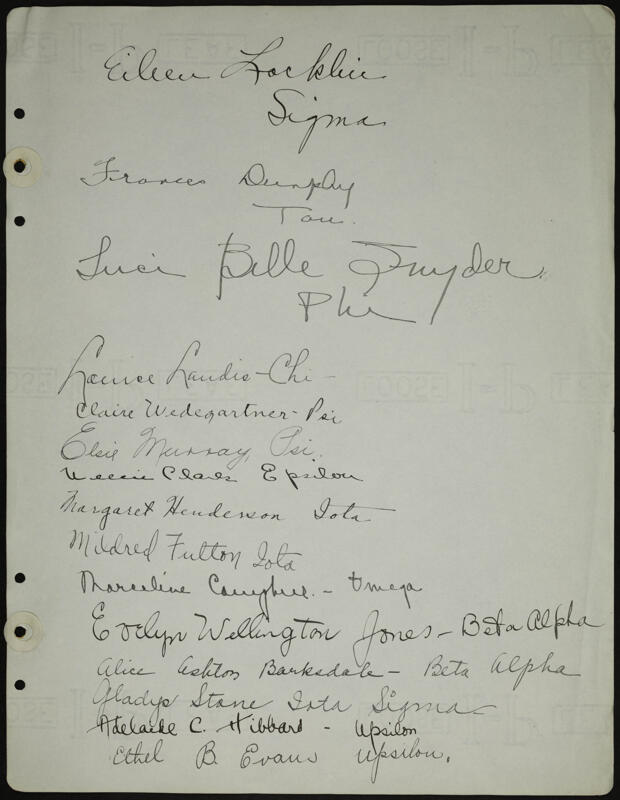 Eileen Locklin
Sigma
Frances Dunphy
Tau.
Luci Belle Snyder
Phi
Landis - Chi -
Claire Wedegartner - Psi
Elsie Murray, Psi.
Clark Epsilon
Margaret Henderson Iota
Mildred Fulton Iota
Marceline - Omega
Evelyn Wellington Jones - Beta Alpha
Alice Ashton Barksdale - Beta Alpha
Gladys Stone Iota Sigma
Adelaide C. Hibbard - Upsilon
Ethel B. Evans Upsilon.